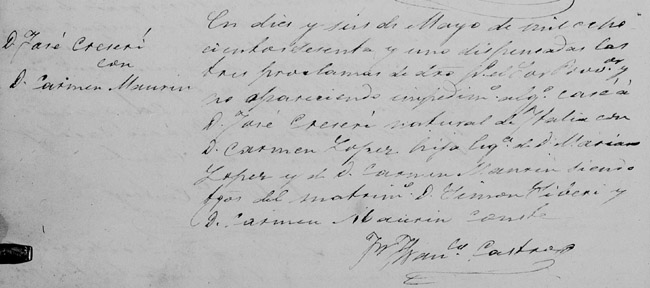 D. José Creserí
con
D. Carmen Maurin
En dies y seis de Mayo de mil ocho
cientos sesenta y uno dispensadas las
tres proclamas de dro p.r el Sor Provor y
no apareciendo impedim.o alg.o casé á
D. José Creserí natural de Italia con
D. Carmen Lopez hija leg.a de D. Marian
Lopez y de D. Carmen Maurin siendo
tgos del matrim.o D. Simon y
D. Carmen Maurin Conste
Fr. Fran.co Castro